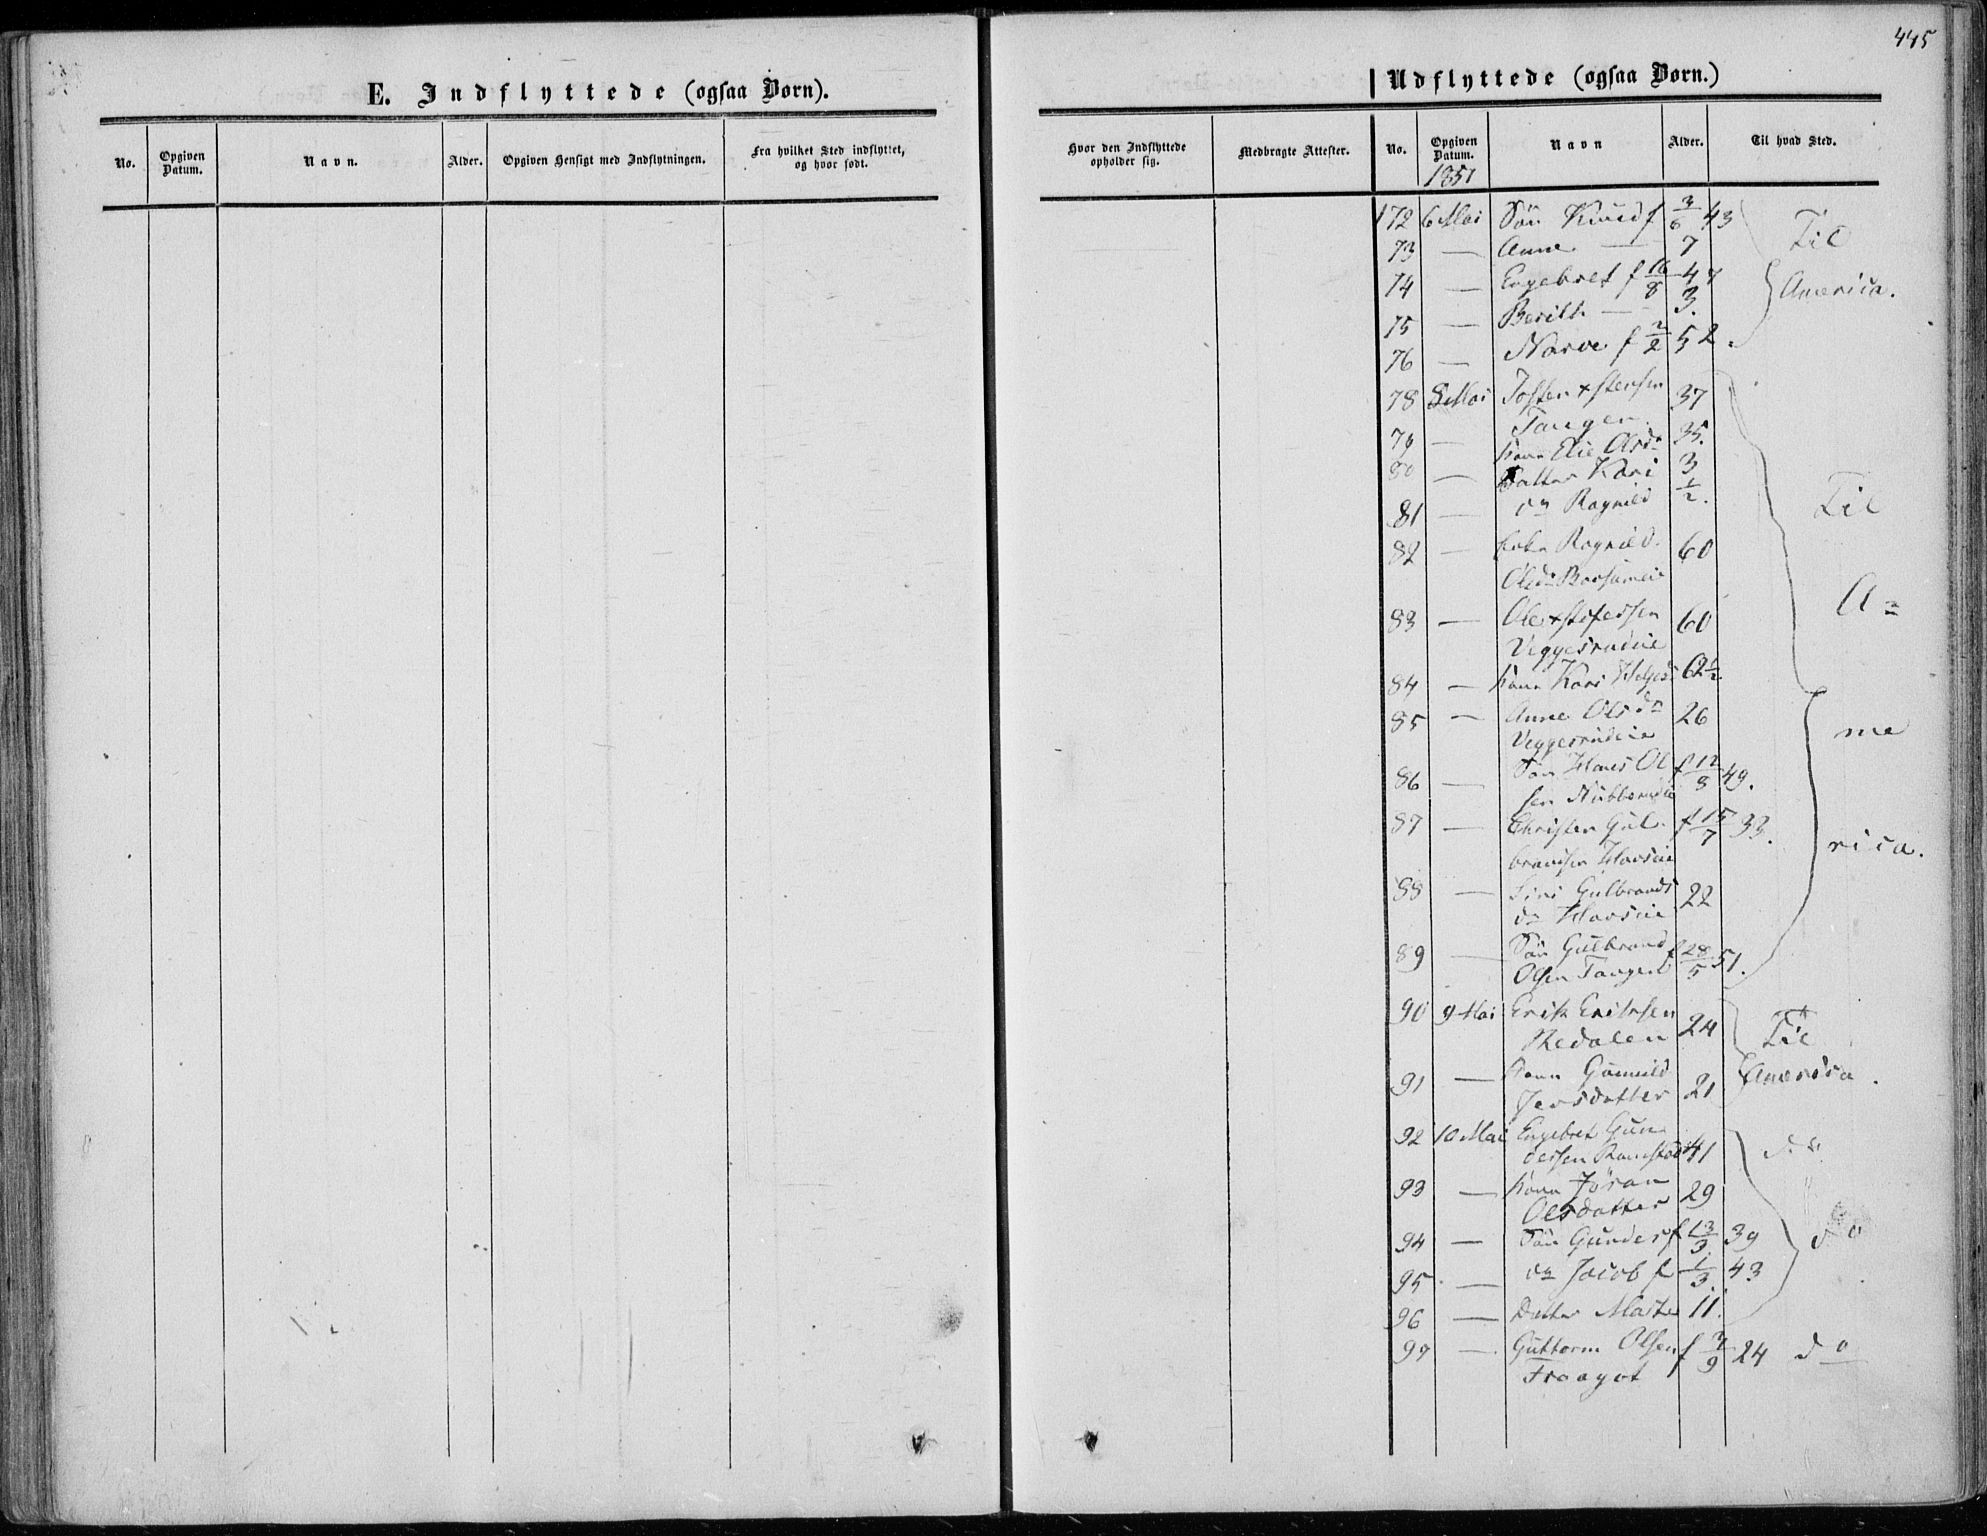 445
E. Indflyttede (ogsaa Børn).
Udflyttede (ogsaa Børn.)
No. Opgiven Datum. Navn. Alder. Opgiven Hensigt med Indflytningen. Fra hvilket Sted indflyttet, og hvor født.
Hvor den Indflyttede opholder sig. Medbragte Attester. No. Opgiven Datum. Navn Alder. Til hvad Sted.
1857
172 6 Mai Søn Knud f 3/6 43
Til
73 — Anne — 7
74 — Engebret f 16/8 47
America.
75 — Berith — 3.
76 — Narve f 2/2 52.
78 8 Mai Tosten 37
Tangen
79 — Kone Olsdr 35.
80 — Datter Kari 3
81 — do Ragnild 1/2.
Til
82 — Ragnild 60
Olsdr
A=
83 — Ole 60
Veggesrudeie
84 — Kone Kari 62 1/2
85 — Anne Olsdr 26
Veggesrudeie
me
86 — Søn Hans Ol f 12/8 49.
sen
87 — Christen Gul= f 15/7 33.
brandsen
rica.
88 — Siri Gulbrands 22
dr
89 — Søn Gulbrand f 28/5 51.
Olsen Tangen
90 9 Mai Erik Eriksen
Redalen 24
Til
91 — Kone Gunnild
America.
Jensdatter 21
92 10 Mai Engebret Gun=
dersen Ramstad 41
do
93 — Kone Jøran
Olsdatter 29
94 — Søn Gunder f 13/3 39
do
95 — do Jacob f 1/3 43
96 — Datter Marte 11.
97 — Guttorm Olsen f 7/9 24 do
Fraagot